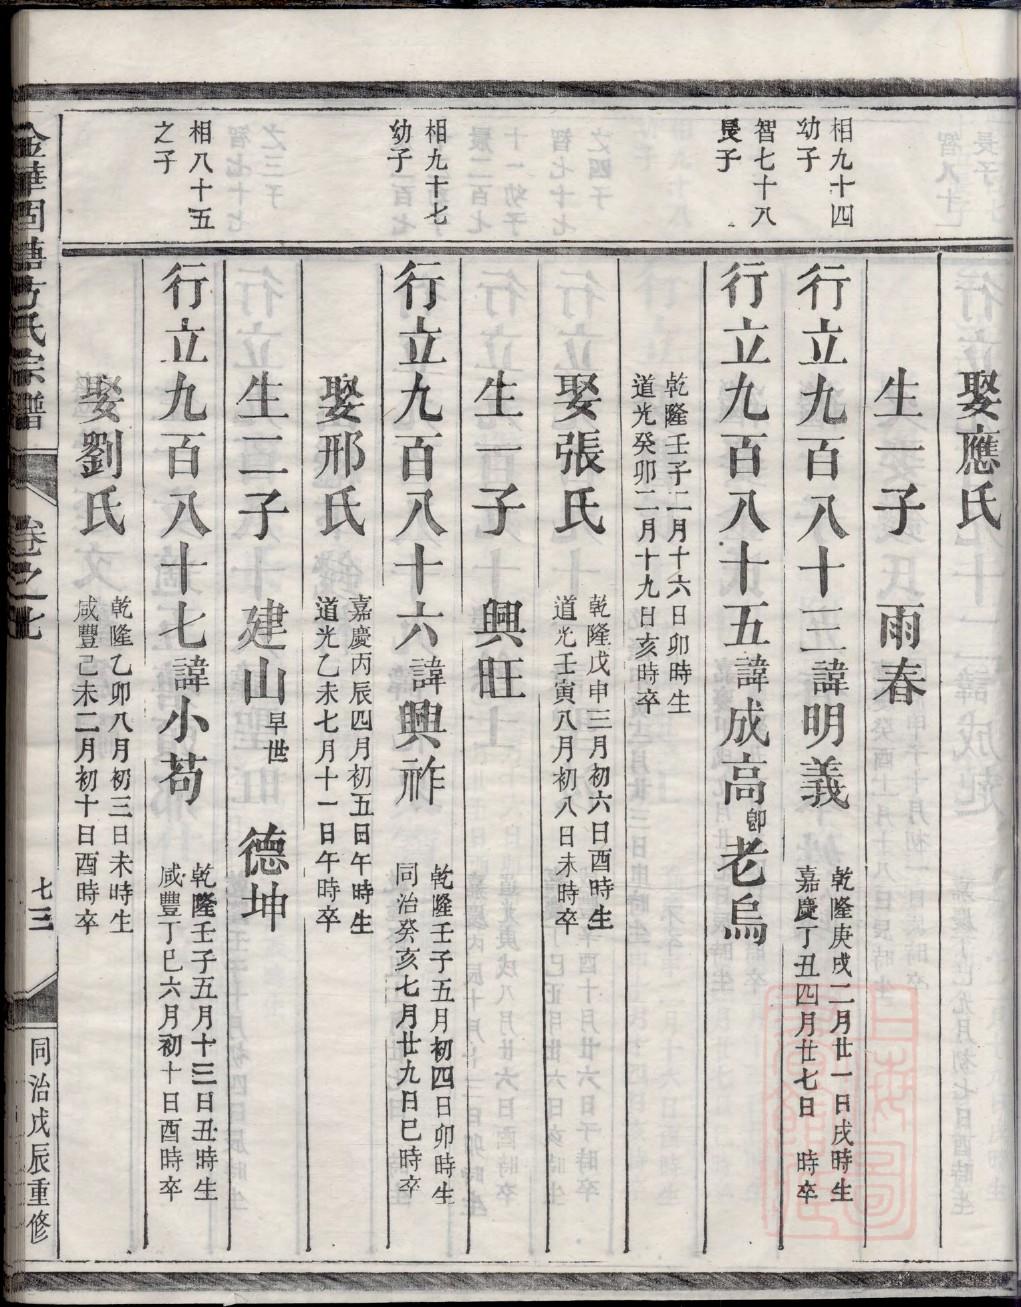 娶應氏
生一子　雨春
相九十四
幼子
行立九百八十三諱明義
乾隆庚戌二月廿一日戌時生
嘉慶丁丑四月廿七日　時卒
智七十八
長子
行立九百八十五諱成高卽老烏
乾隆壬子二月十六日卯時生
道光癸卯二月十九日亥時卒
娶張氏
乾隆戊申三月初六日酉時生
道光壬寅八月初八日未時卒
生一子　興旺
相九十七
幼子
行立九百八十六諱興祚
乾隆壬子五月初四日卯時生
同治癸亥七月廿九日巳時卒
娶邢氏
嘉慶丙辰四月初五日午時生
道光乙未七月十一日午時卒
生二子　建山早世　德坤
相八十五
之子
行立九百八十七諱小苟
乾隆壬子五月十三日丑時生
咸豐丁巳六月初十日酉時卒
娶劉氏
乾隆乙卯八月初三日未時生
咸豐己未二月初十日酉時卒
金華固塘方氏宗譜
卷之七
七三
同治戊辰重修